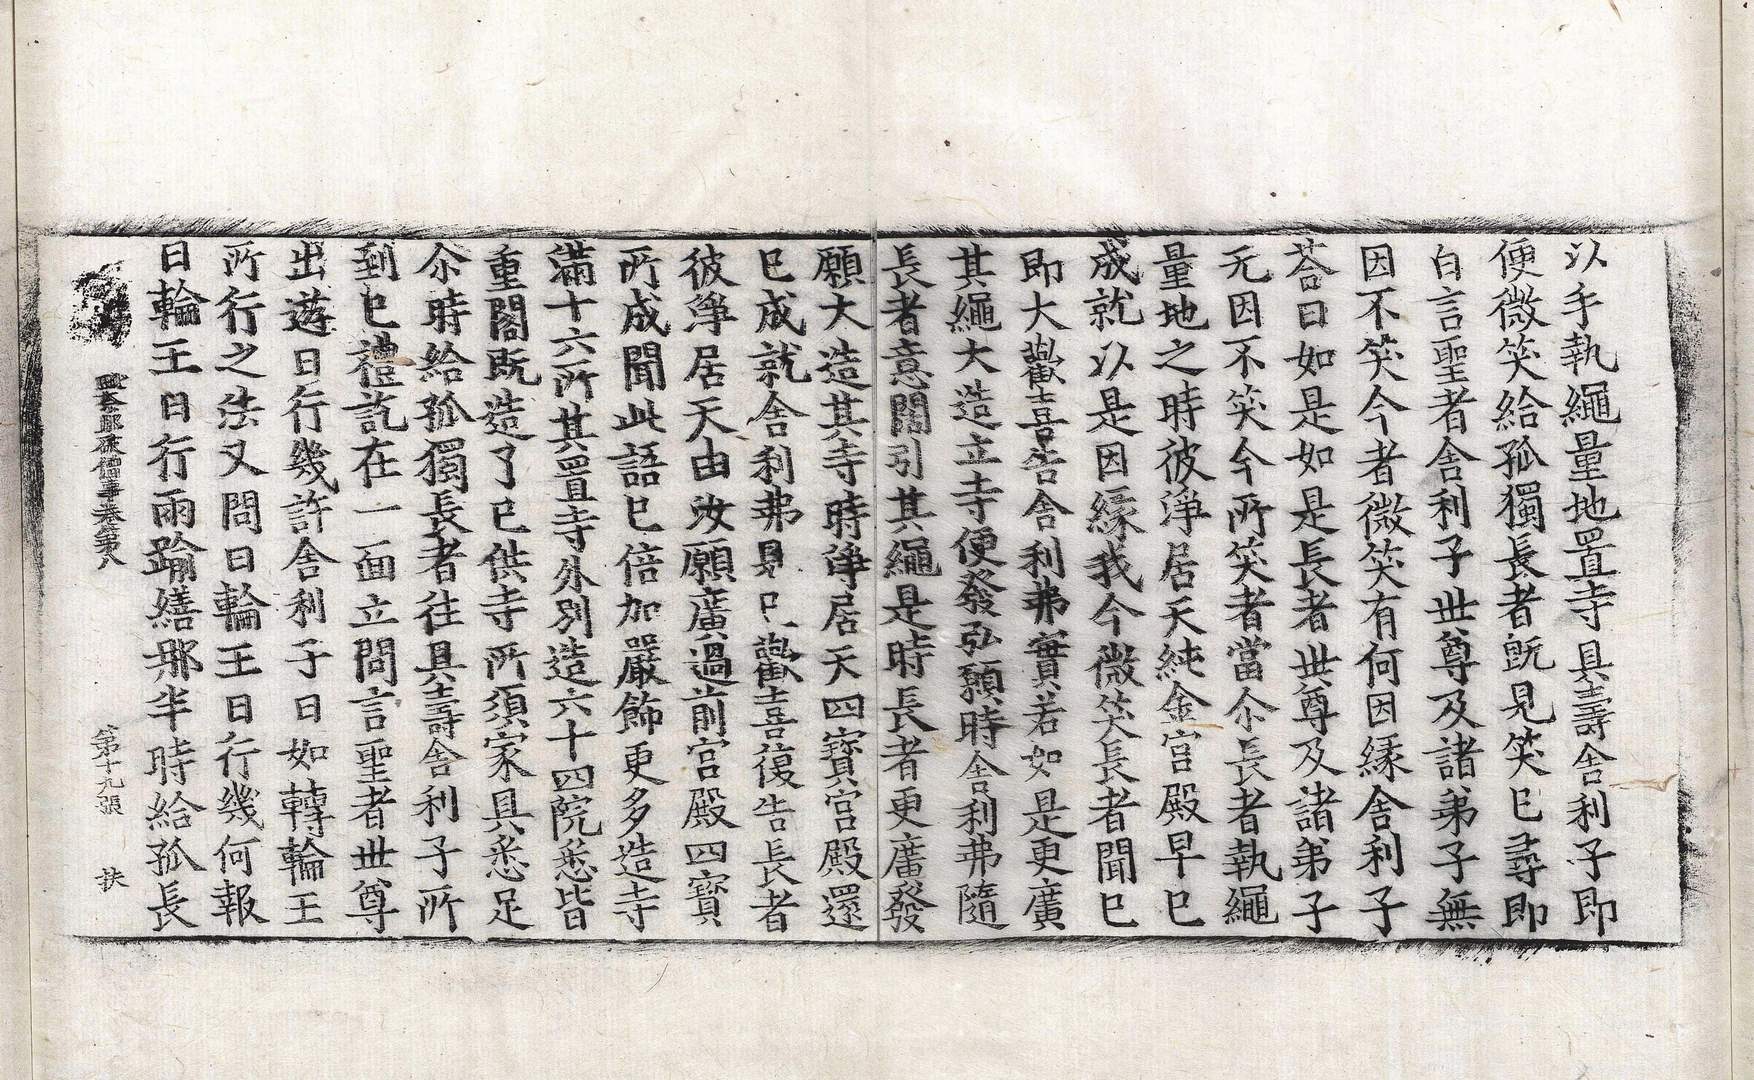 以手執繩量地置寺具壽舍利子即
便微笑給孤獨長者旣見笑已尋即
白言聖者舍利子世尊及諸弟子無
因不笑今者微笑有何因縁舍利子
荅曰如是如是長者世尊及諸弟子
无因不笑今所笑者當尒長者執繩
量地之時彼淨居天純金宮殿早已
成就以是因縁我今微笑長者聞已
即大歡喜告舍利弗實若如是更廣
其繩大造立寺便發弘願時舍利弗隨
長者意闊引其繩是時長者更廣發
願大造其寺時諍居天四寶宮殿還
已成就舍利弗見已歡喜復告長者
彼諍居天由汝願廣過前宮殿四寶
所成聞此語已倍加嚴飾更多造寺
滿十六所其置寺外別造六十四院悉皆
重閣既造了已供寺所須家具悉足
尒時給孤獨長者往具壽舍利子所
到已禮訖在一面立問言聖者世尊
出遊日行幾許舍利子曰如轉輪王
所行之法又問曰輪王日行幾何報
曰輪王日行兩踰繕那半時給孤長
破僧事卷第八 第十九張 扶